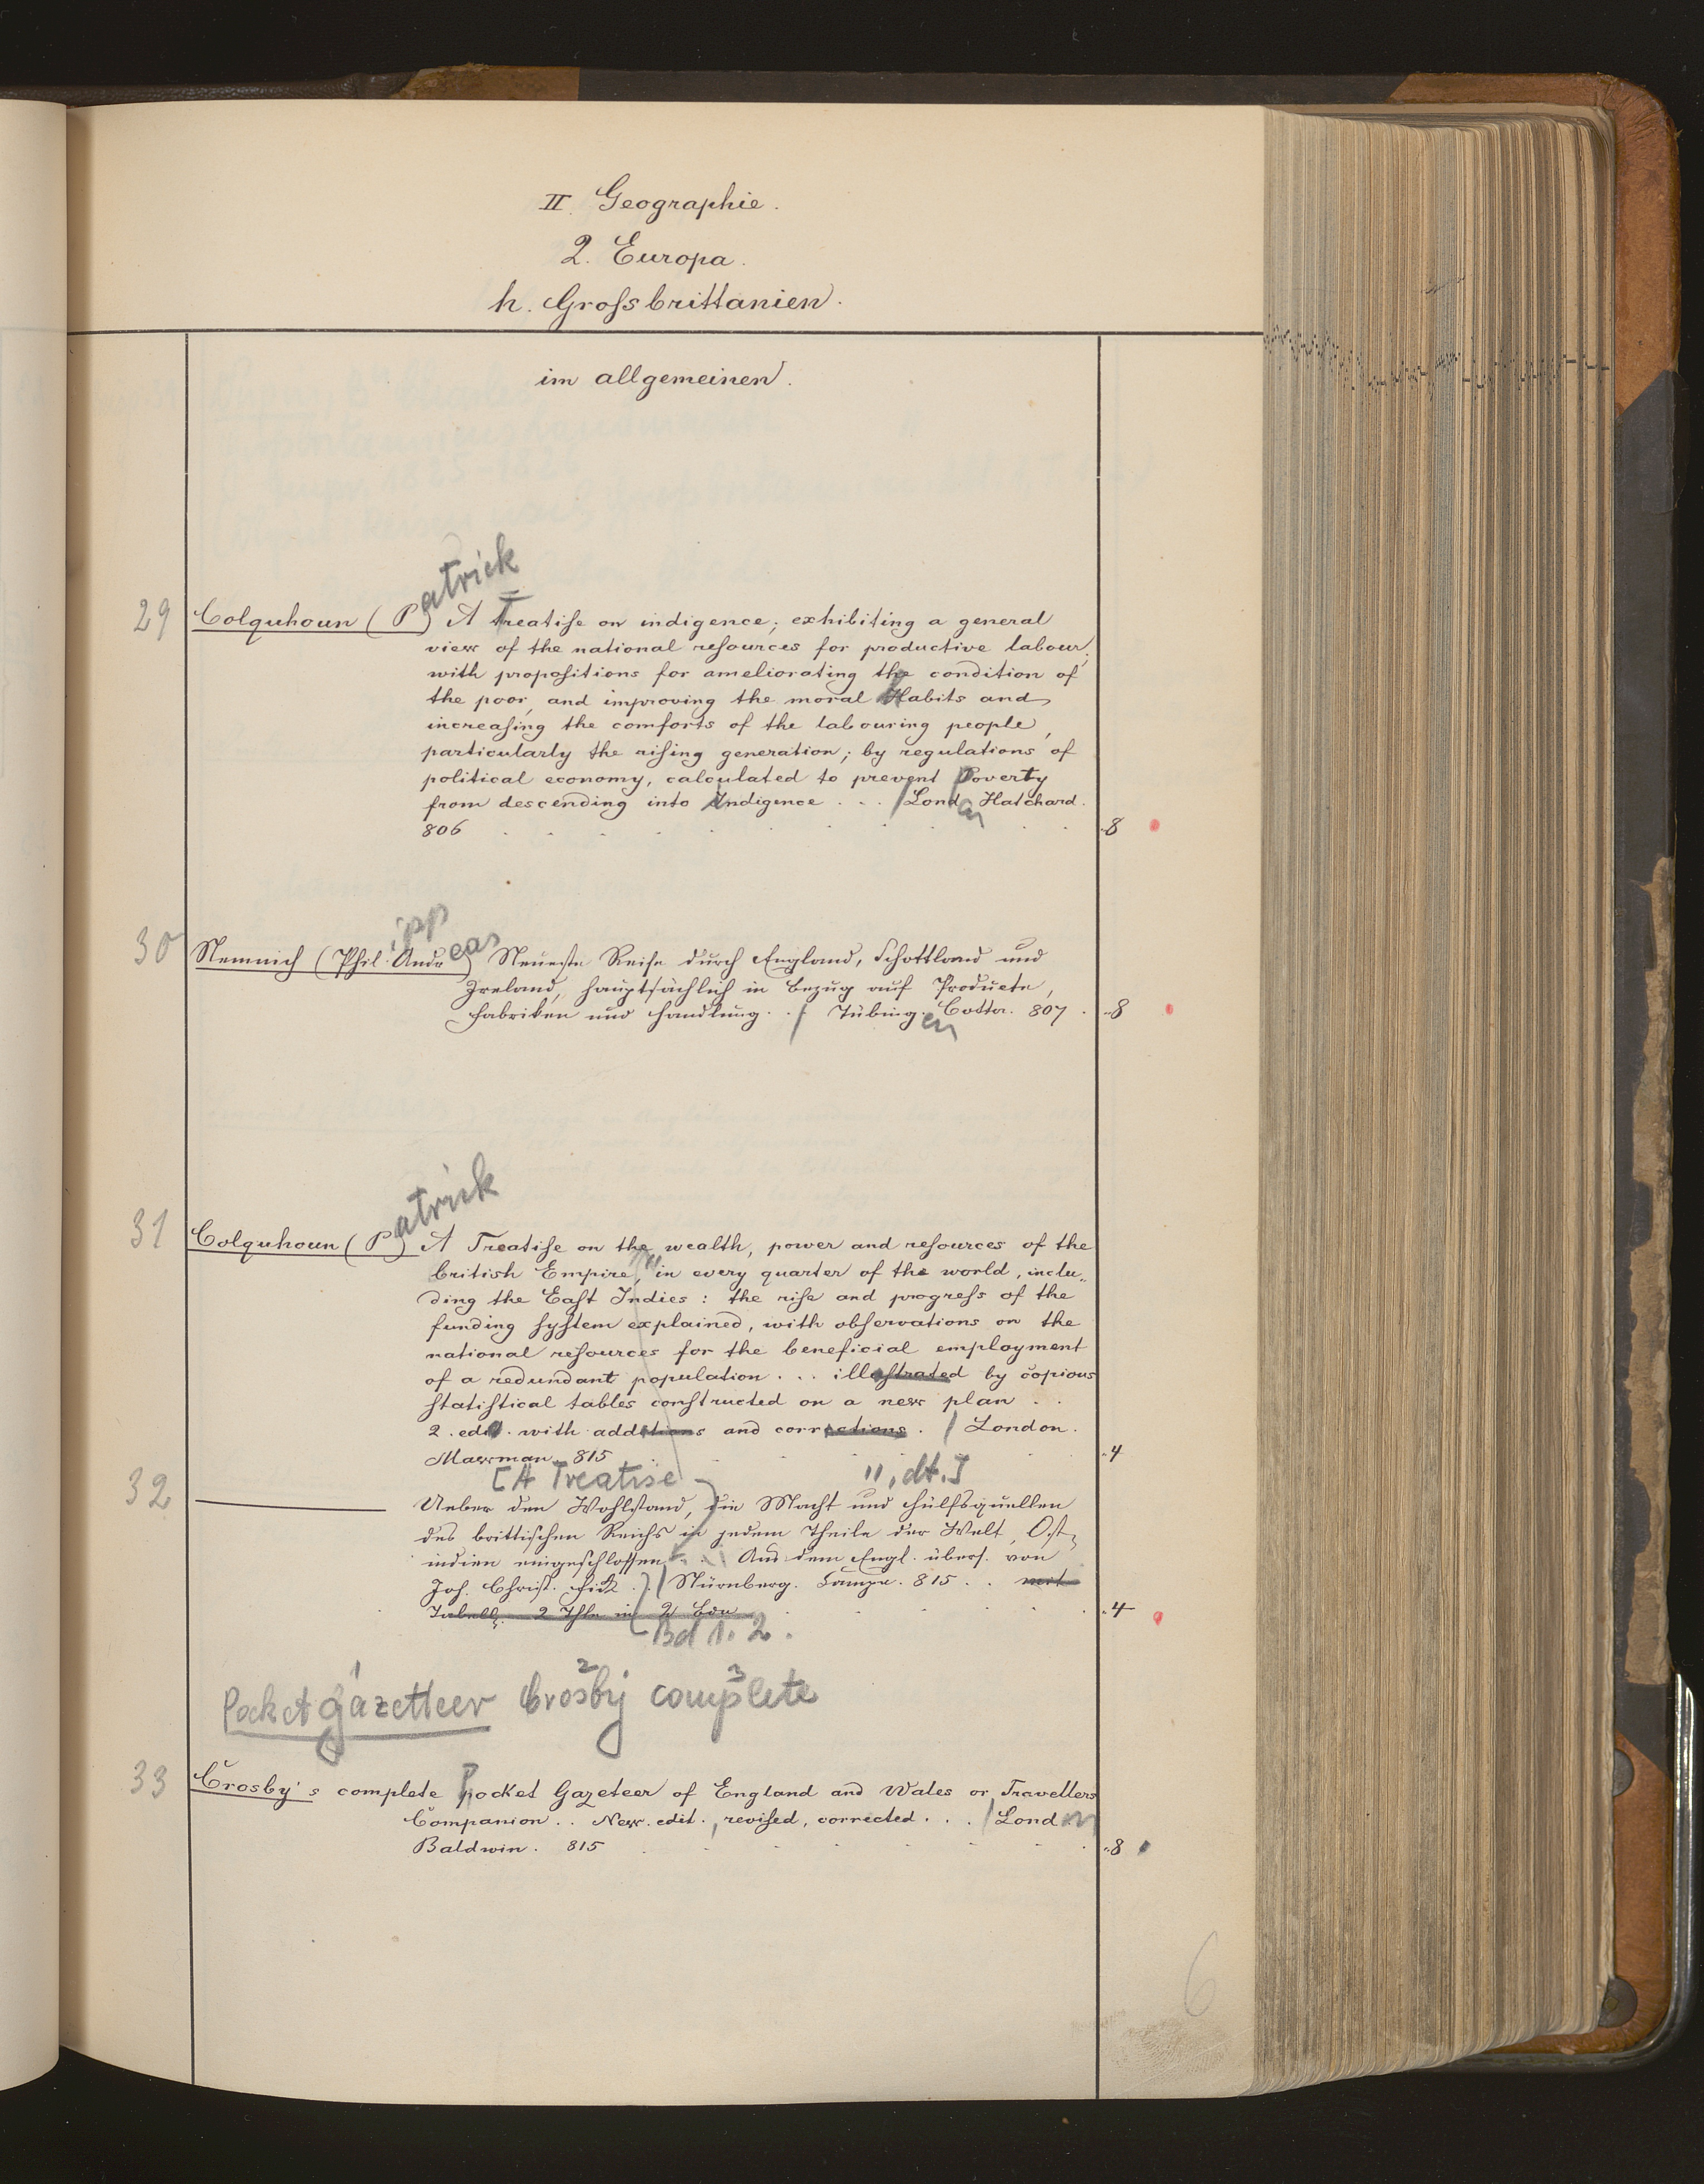 II. Geographie.
2. Europa.
h. Grofsbrittanien.
im allgemeinen.
29 Colquhoun (P atrick) A Treatife on indigence; exhibiting a general
view of the national refources for productive labour;
with propofitions for ameliorating the condition of
the poor, and improving the moral habits and
increafing the comforts of the labouring people,
particularly the rifing generation; by regulations of
political economy, calculated to prevent Poverty
from descending into Indigence . . . / London Hatchard.
806 . . . 8
30 Nemnich (Phil.ipp Andreas) Neueste Reise durch England, Schottland und
Ireland, hauptsächlich in Bezug auf Producte,
Fabriken und Handlung. . / Tübingen Cotta. 807 . 8
31 Colquhoun (P atrick) A Treatife on the wealth, power and refources of the
british Empire, in every quarter of the world, inclu„
ding the Eaft Indies : the rife and progrefs of the
funding fyftem explained, with obfervations on the
national refources for the beneficial employment
of a redundant population . . . illuftrated by copious
ftatiftical tables conftructed on a new plan . .
2. edit. with additions and corrections . / London.
Mawman 815 . 4
[A Treatise ", dt.]
32 ——— Ueber den Wohlstand, die Macht und Hülfsquellen
des brittischen Reichs in jedem Theile der Welt, Ost„
indien eingeschlossen . . Aus dem Engl. übers. von
Joh. Christ. Fick .) / Nürnberg. Campe. 815 . . mit
Tabell. 2 Thle in 2 Bde . 4
Bd 1. 2.
1 2 3
Pocket gazetteer Crosby complete
33 Crosby's complete Pocket Gazeteer of England and Wales or Travellers
Companion . . New. edit., revifed, corrected . . . / London
Baldwin. 815 . 8
6